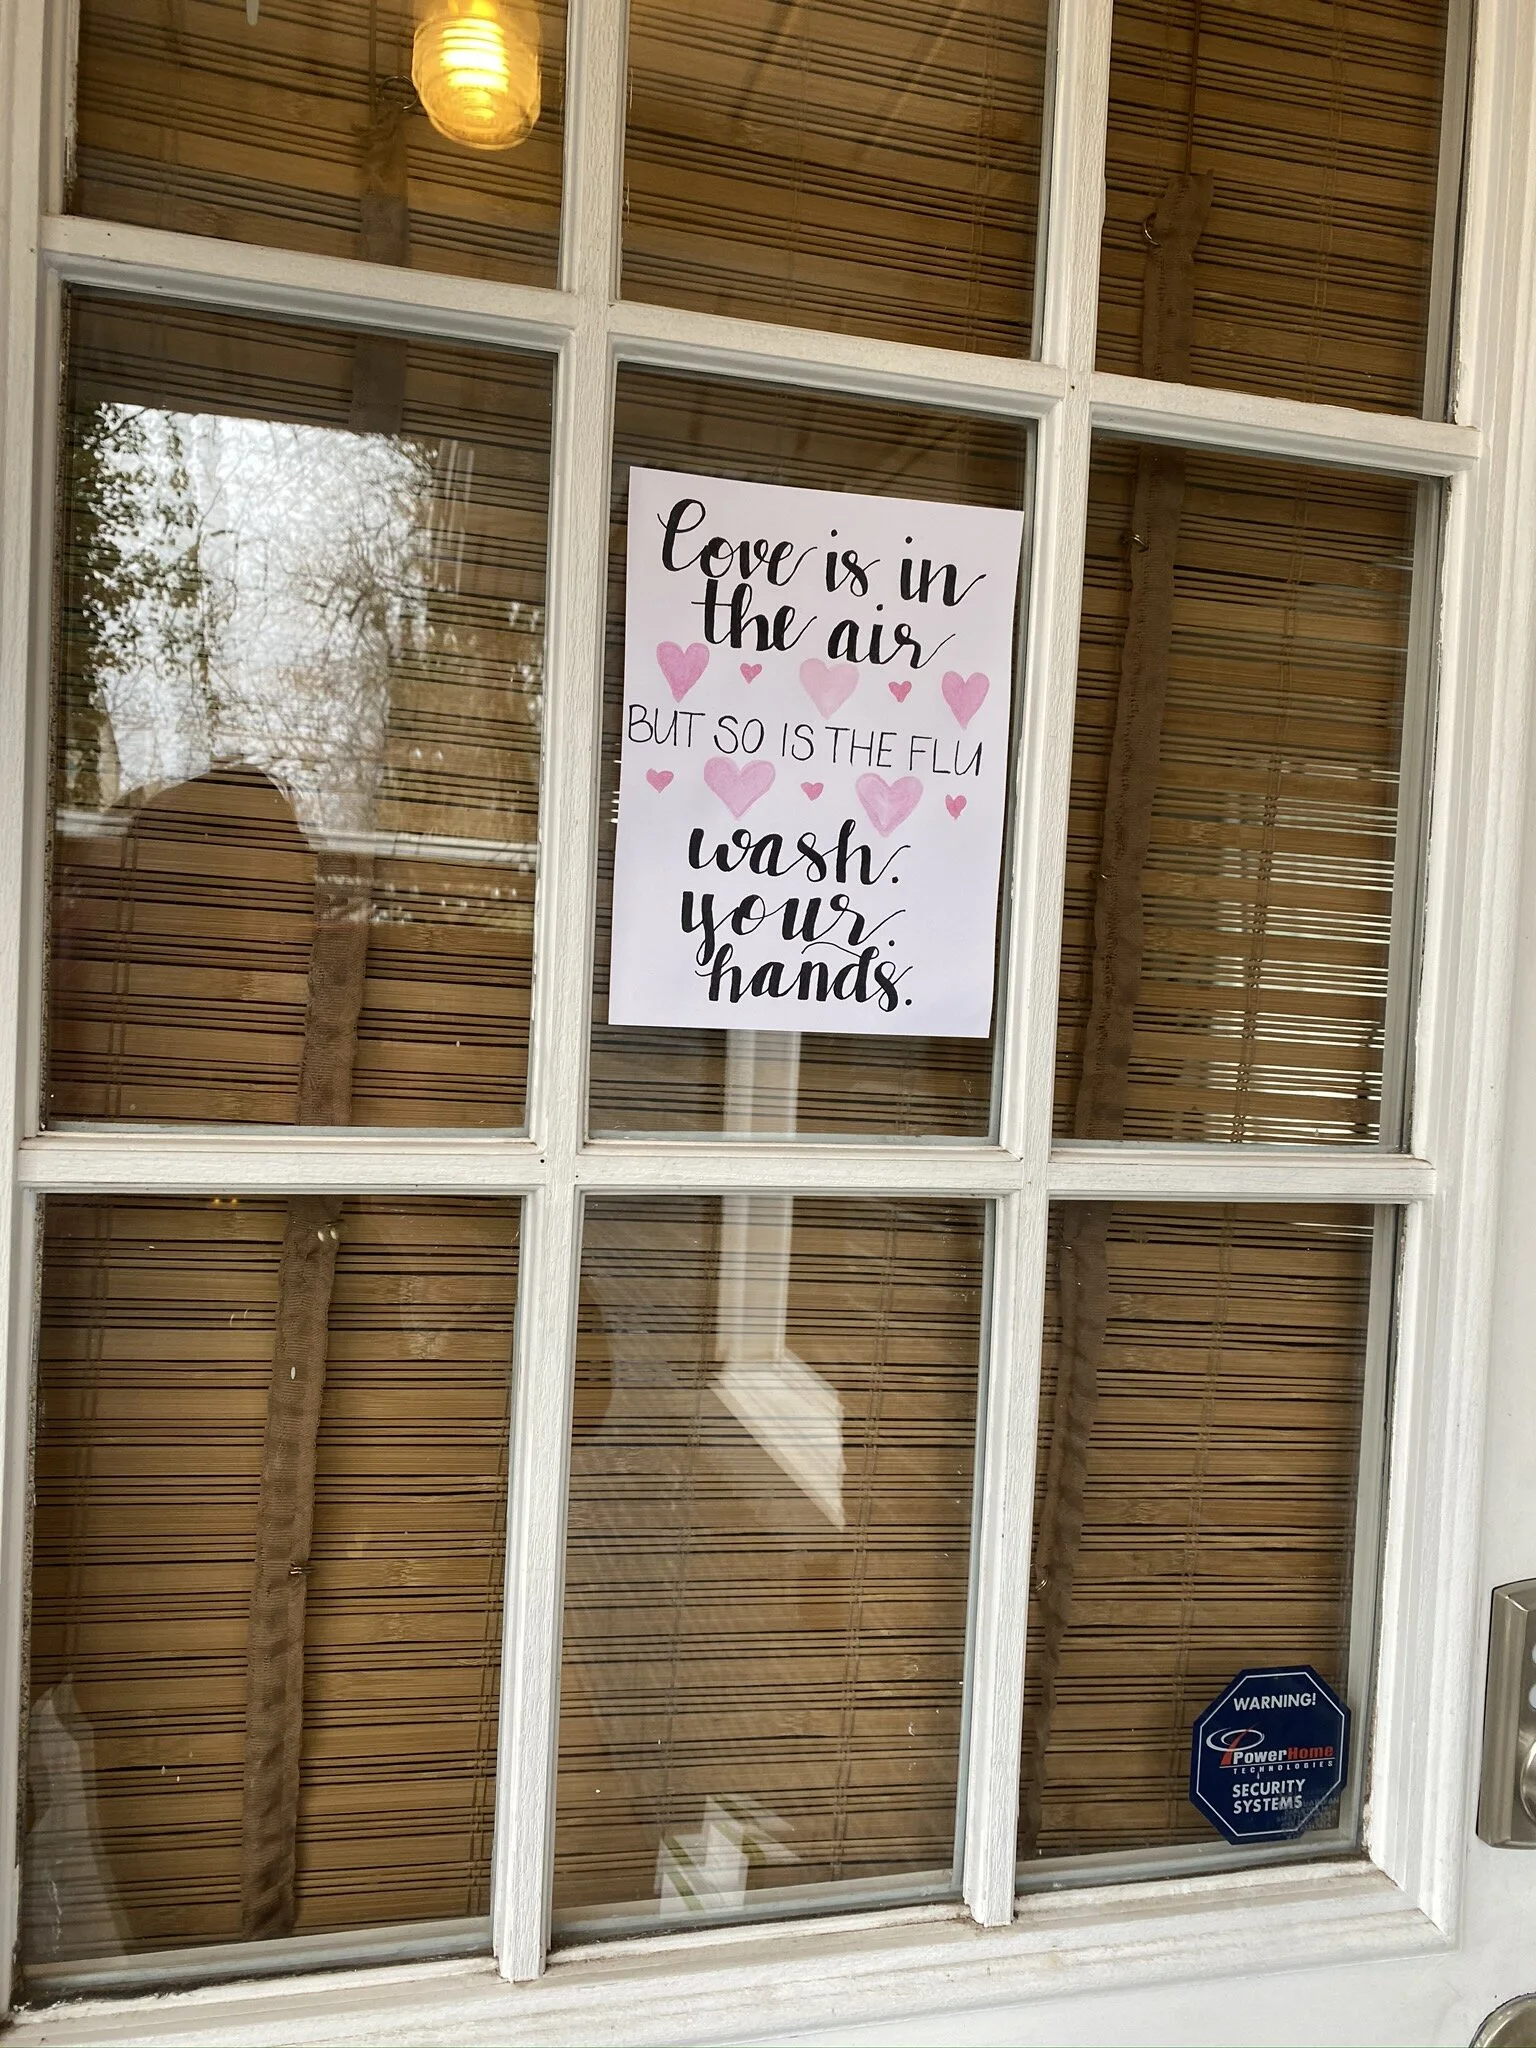 Love is in
the air
BUT SO IS THE FLU
wash.
your.
hands.
WARNING!
PowerHome
TECHNOLOGIES
SECURITY
SYSTEMS